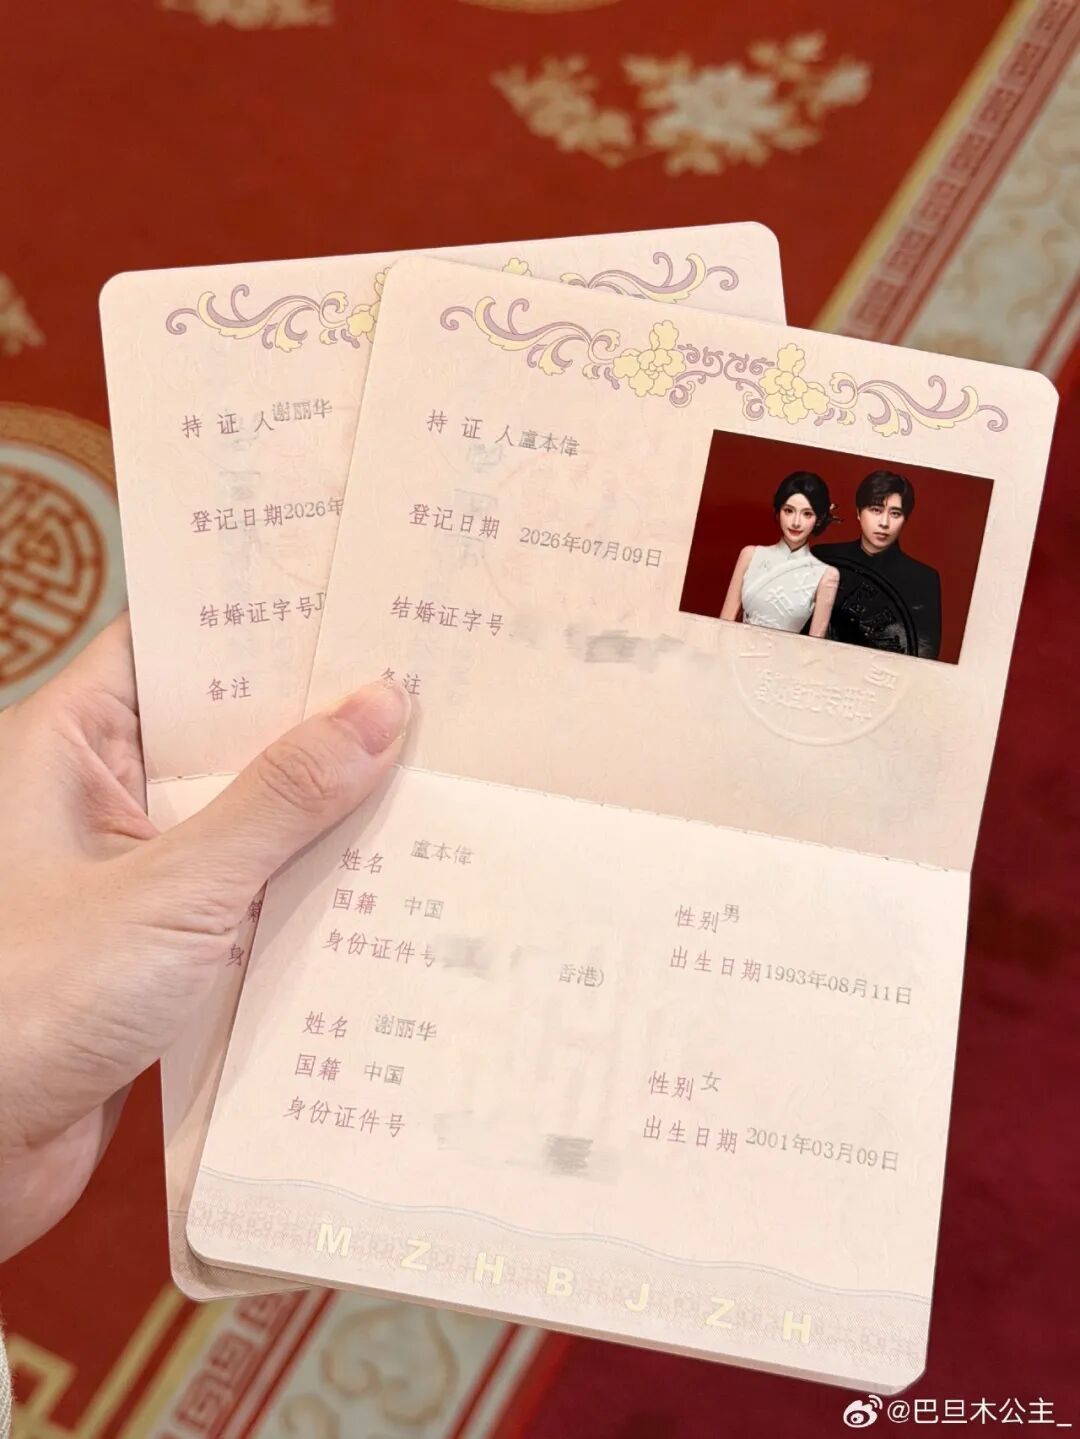 持证人谢丽华
登记日期2026年
结婚证字号J
备注
持证人盧本偉
登记日期 2026年07月09日
结婚证字号
备注
婚姻登记专用章
姓名 盧本偉
国籍 中国
性别男
身份证件号
香港)
出生日期1993年08月11日
姓名 谢丽华
国籍 中国
性别女
身份证件号
出生日期2001年03月09日
籍
身
MZHBJZH
@巴旦木公主_